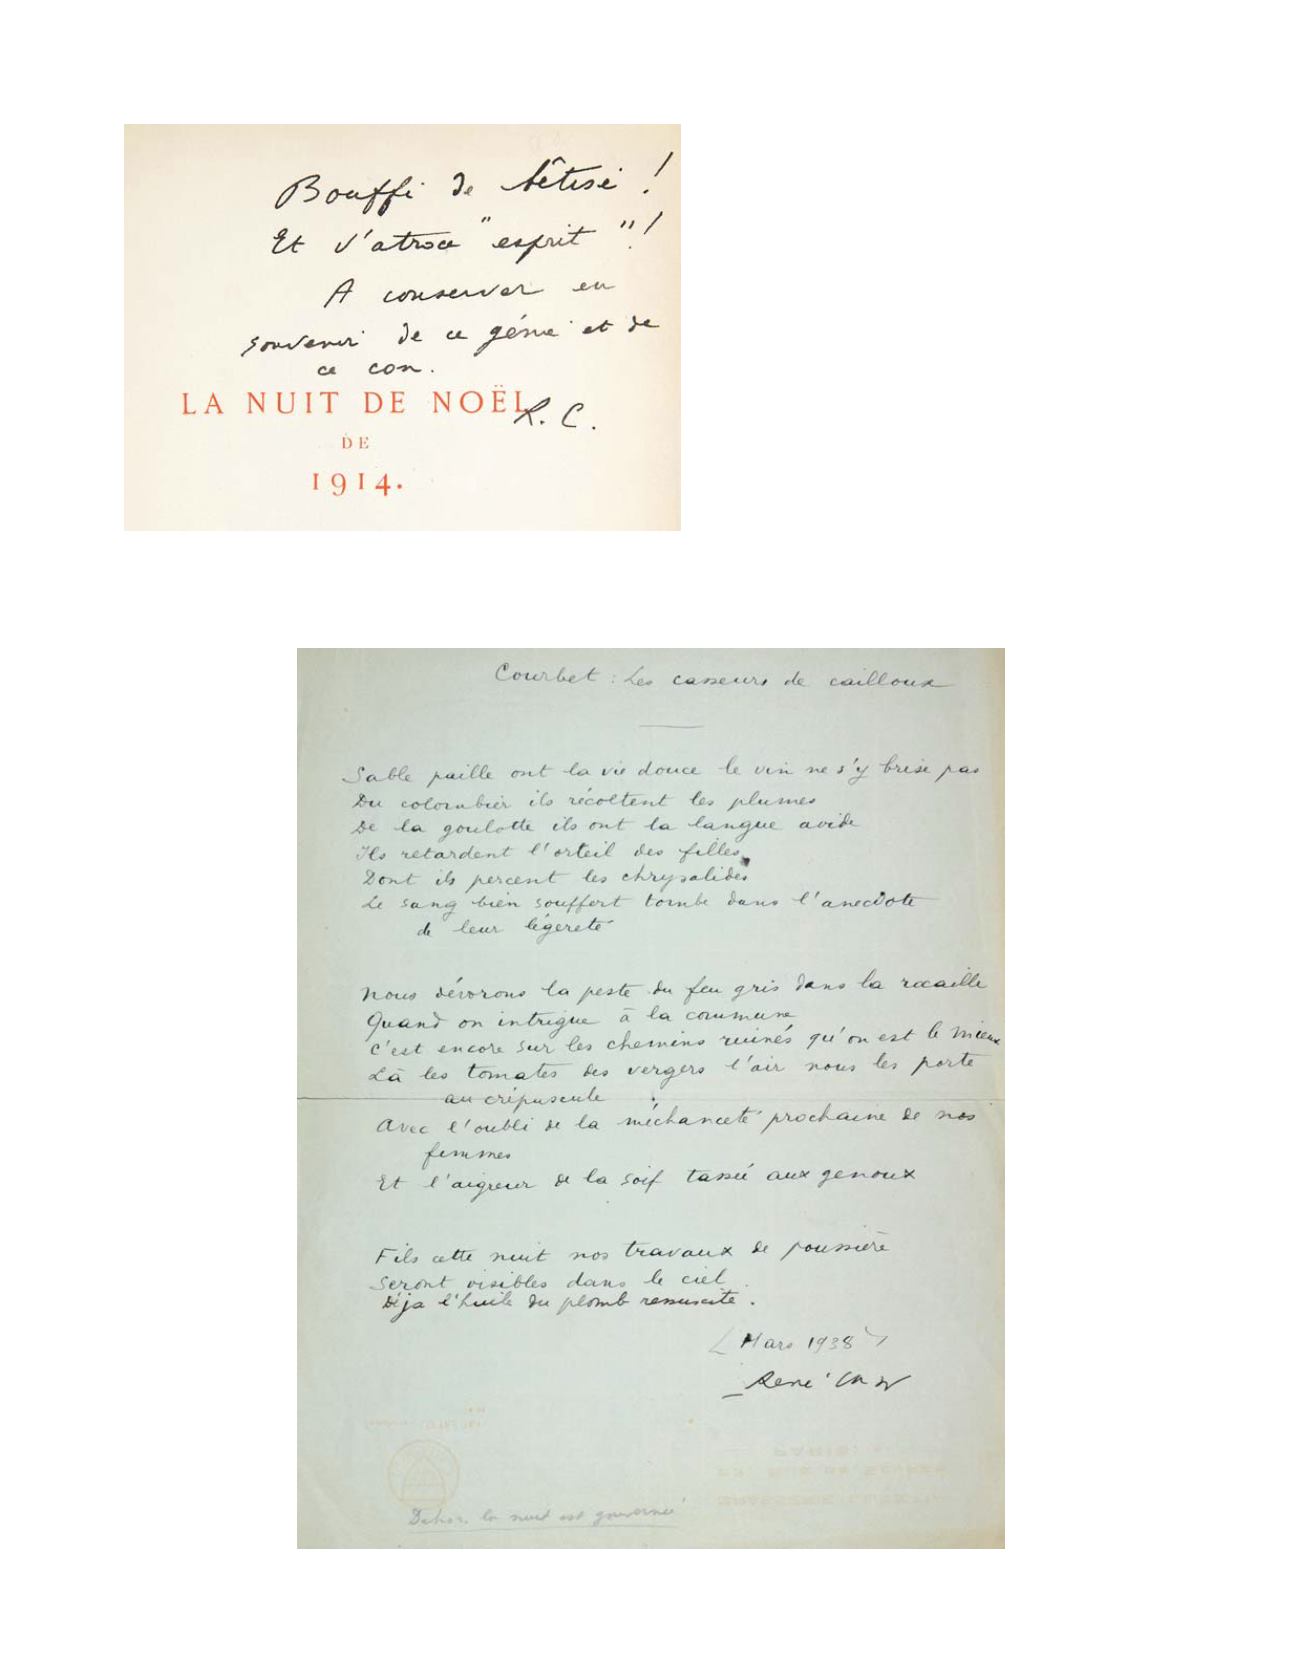 Bouffi de bêtise !
Et d'atroce "esprit" !
A conserver en
souvenir de ce génie et de
ce con.
LA NUIT DE NOËL
R. C.
DE
1914.
Courbet : Les casseurs de cailloux
Sable paille ont la vie douce le vin ne s'y brise pas
Du colombier ils récoltent les plumes
De la goulotte ils ont la langue avide
Ils retardent l'orteil des filles
Dont ils percent les chrysalides
Le sang bien souffert tombe dans l'anecdote
de leur légereté
Nous dévorons la peste du feu gris dans la rocaille
Quand on intrigue à la commune
C'est encore sur les chemins ruinés qu'on est le mieux
Là les tomates des vergers l'air nous les porte
au crépuscule
Avec l'oubli de la méchanceté prochaine de nos
femmes
Et l'aigreur de la soif tassée aux genoux
Fils cette nuit nos travaux de poussière
Seront visibles dans le ciel
Déja l'huile du plomb ressuscite.
Mars 1938
René Char
Dehors la nuit est gouvernée